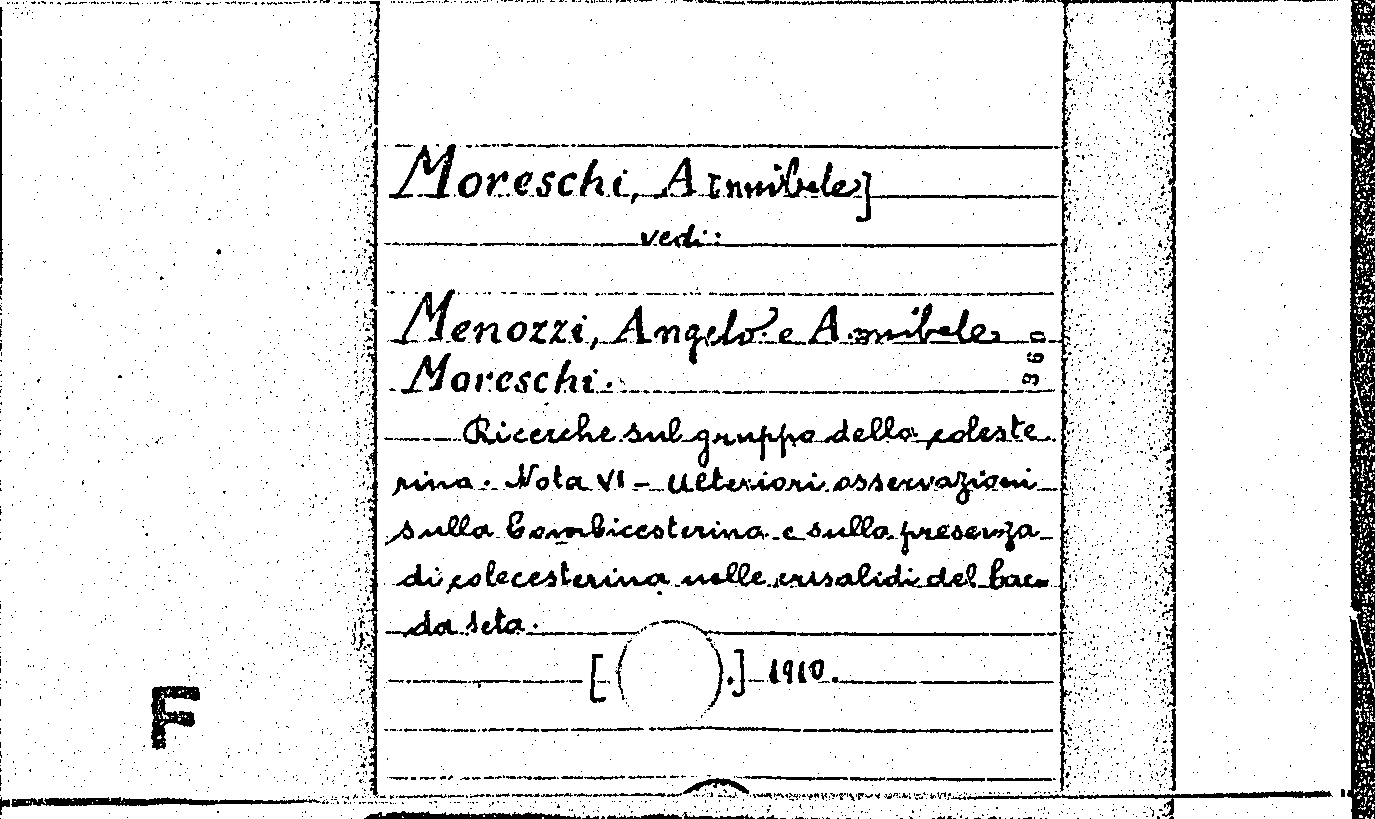 Moreschi, A[nnibale]
vedi:
Menozzi, Angelo e Annibale
360
Moreschi.
Ricerche sul gruppo della coleste
rina. Nota VI - Ulteriori osservazioni
sulla bombicesterina e sulla presenza
di colecesterina nelle crisalidi del baco
da seta.
[ .] 1910.
F